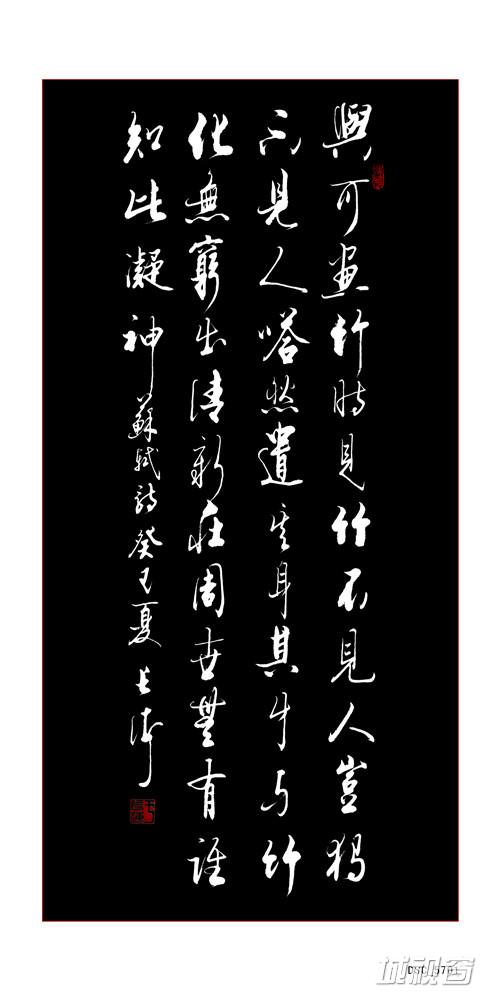 與可畫竹時見竹不見人豈獨
不見人嗒然遺其身其身与竹
化無窮出清新莊周世無有誰
知此凝神 蘇軾詩 癸巳夏 長
城视窗